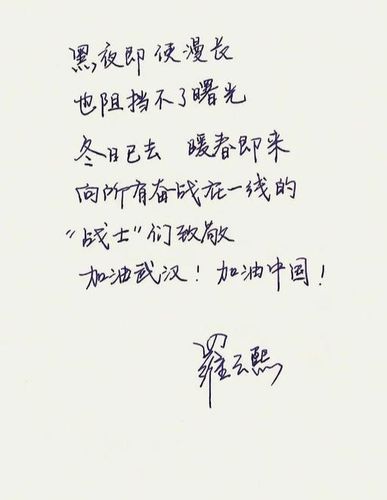 黑夜即使漫长
也阻挡不了曙光
冬日已去 暖春即来
向所有奋战在一线的
“战士”们致敬
加油武汉！加油中国！
罗云熙